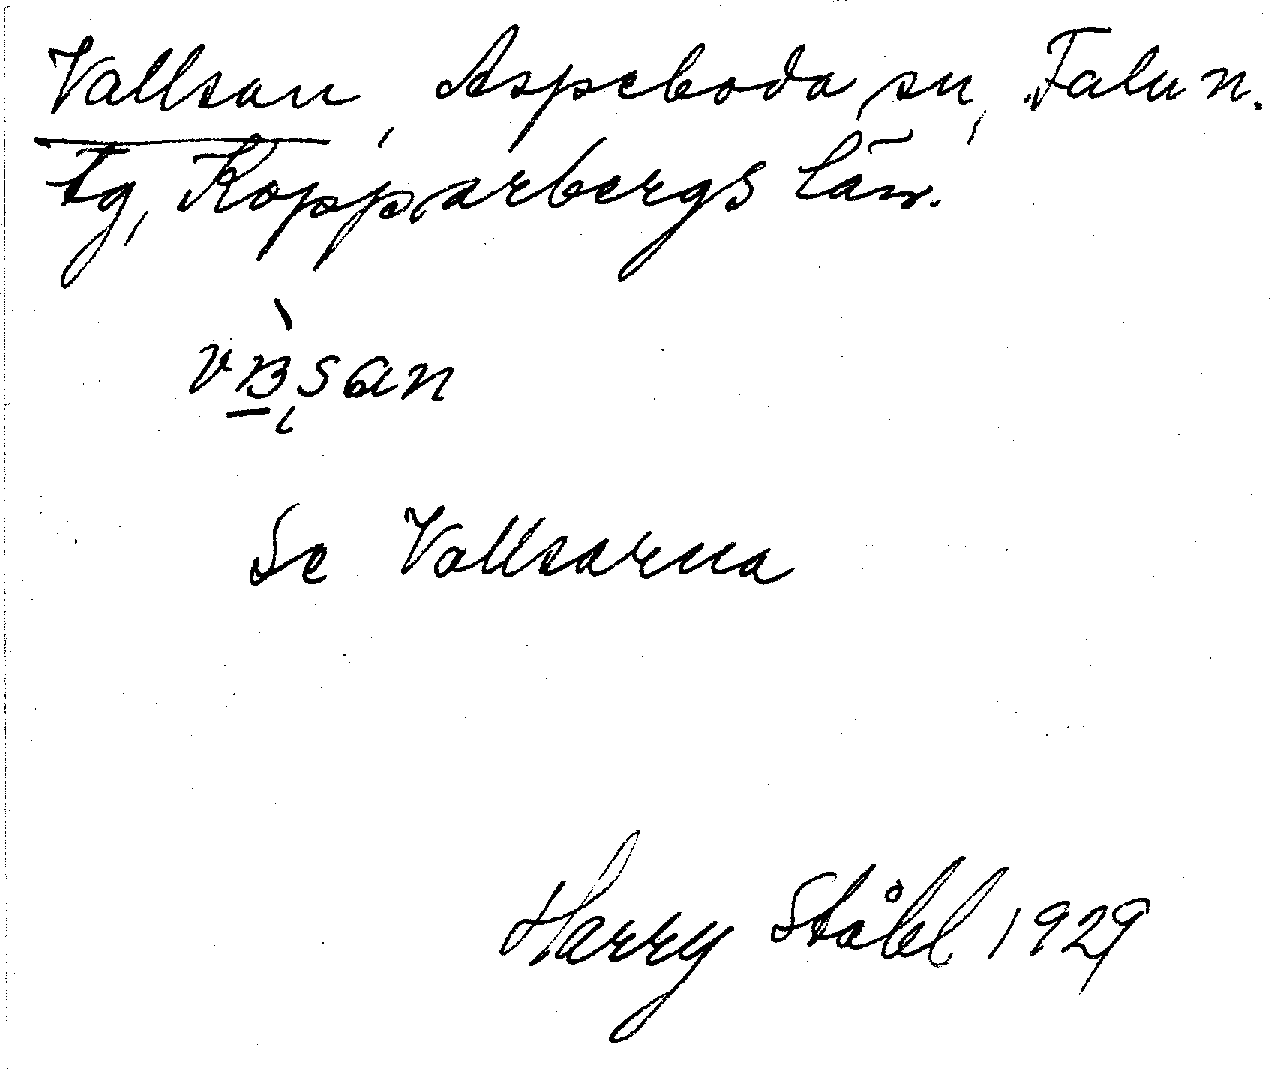 Vallsan, Aspeboda sn, Falun.
tg, Kopparbergs län.
Se Vallsarna
Harry Ståhl 1929